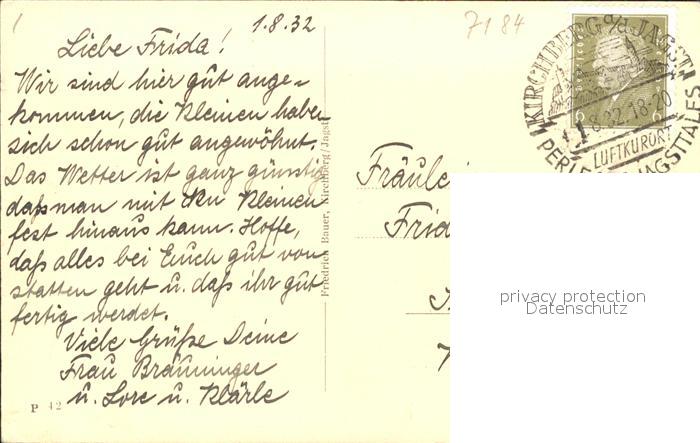 1.8.32
7184
Liebe Frida!
Wir sind hier gût ange-
kommen, die Kleinen haben
sich schon gût angewöhnt.
Das Wetter ist ganz günstig
daß man mit den Kleinen
fest hinaus kann. Hoffe,
daß alles bei Euch gût von
statten geht û. daß ihr gût
fertig werdet.
Viele Grüße Deine
Frau Bräuninger
û. Lore û. Klärle
P 42
Friedrich Bauer, Kirchberg/Jagst
KIRCHBERG a/d JAGST
1.8.32.18-20
LUFTKURORT
PERLE JAGSTTALES
6
Fräulei
Frid
privacy protection
Datenschutz